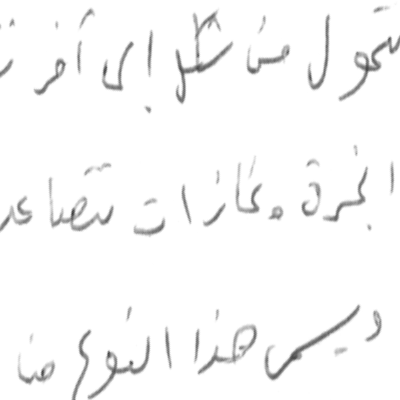 تتحول من شكل إلى آخر
أبخرة وغازات تتصاعد
ويسمى هذا النوع من